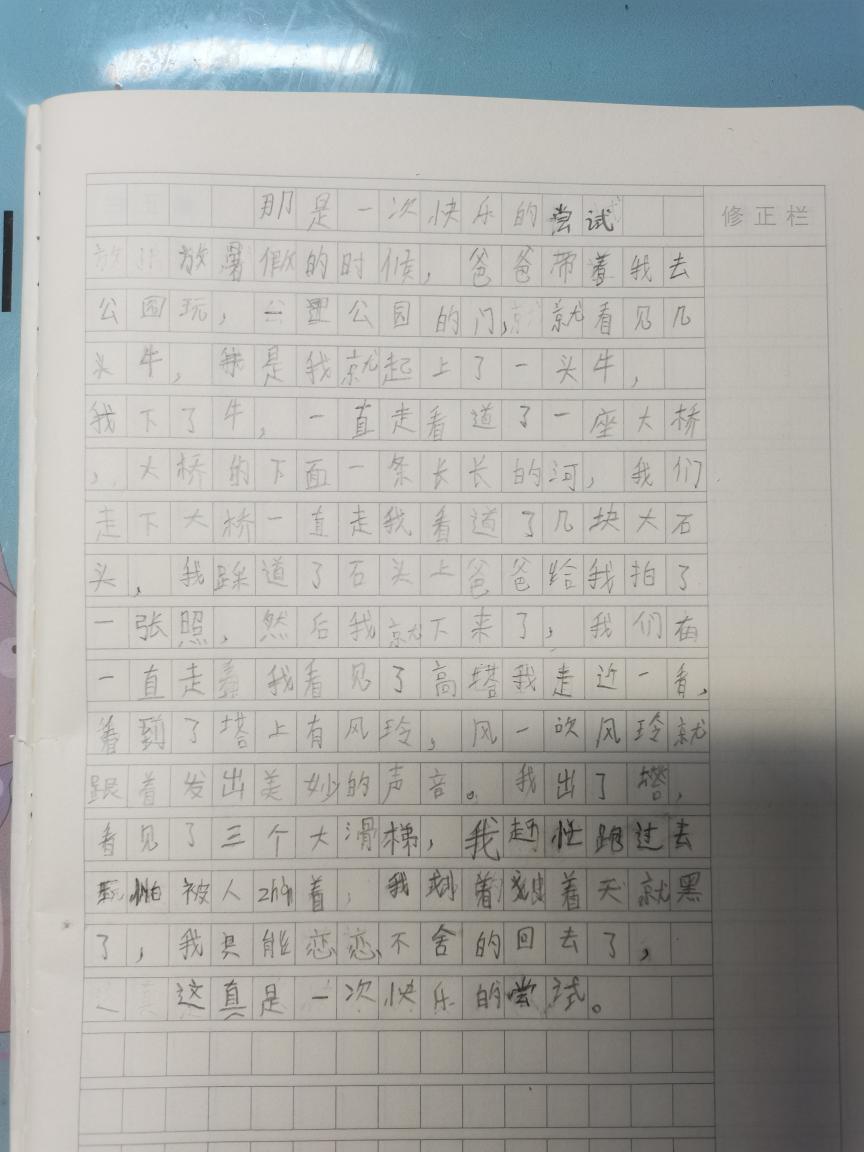 那是一次快乐的尝试
修正栏
放暑假的时候，爸爸带着我去
公园玩，一进公园的门，就看见几
头牛，我是我就起上了一头牛，
我下了牛，一直走看道了一座大桥
，大桥的下面一条长长的河，我们
走下大桥一直走我看道了几块大石
头，我踩道了石头上爸爸给我拍了
一张照，然后我就下来了，我们在
一直走着我看见了高塔我走近一看，
着到了塔上有风玲，风一吹风玲就
跟着发出美妙的声音。我出了塔，
看见了三个大滑梯，我赶忙跑过去
玩怕被人zhan着，我划着划着天就黑
了，我只能恋恋不舍的回去了，
这真是一次快乐的尝试。